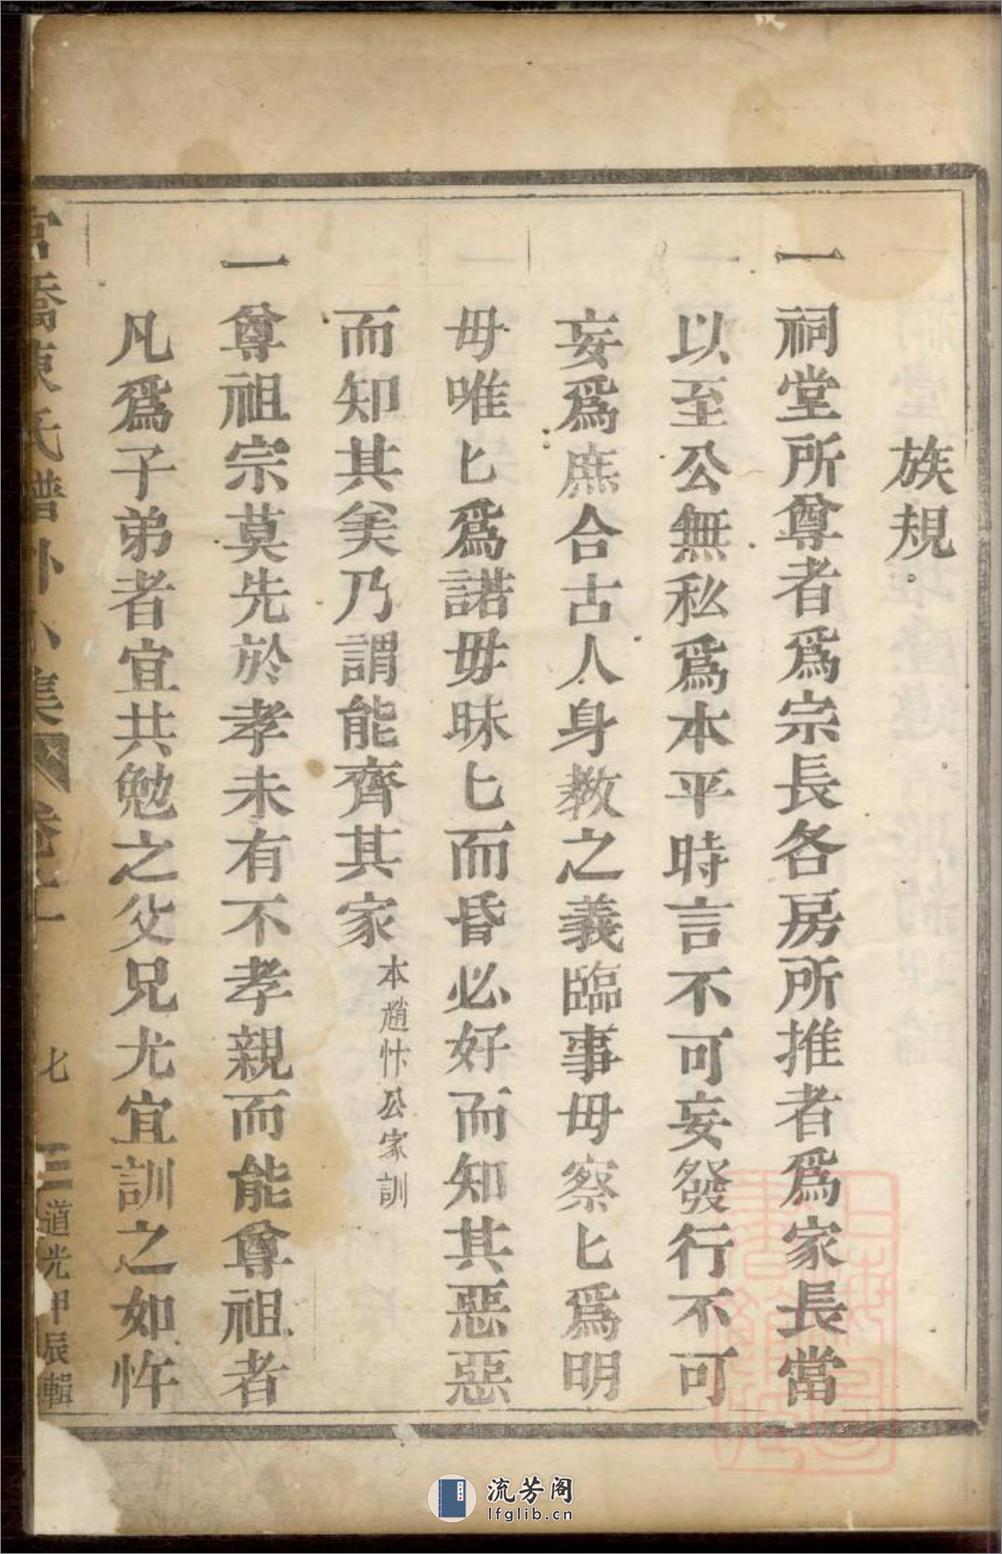 族規
一祠堂所尊者爲宗長各房所推者爲家長當
以至公無私爲本平時言不可妄發行不可
妄爲庶合古人身教之義臨事毋察匕爲明
毋唯匕爲諾毋昧匕而昏必好而知其惡惡
而知其美乃謂能齊其家本趙忭公家訓
一尊祖宗莫先於孝未有不孝親而能尊祖者
凡爲子弟者宜共勉之父兄尤宜訓之如忤
宫橋陳氏譜外小集 卷上 七 道光甲辰輯
流芳阁
lfglib.cn